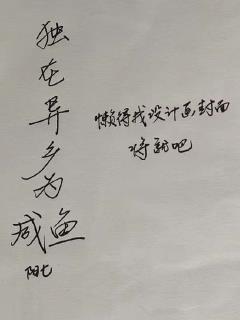 独在异乡为
咸鱼
阳七
懒得找设计画封面
将就吧